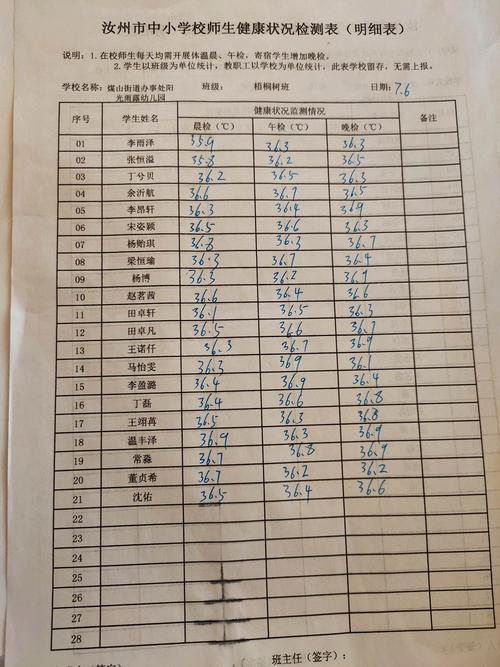 汝州市中小学校师生健康状况检测表（明细表）
说明：1.在校师生每天均需开展体温晨、午检，寄宿学生增加晚检。
2.学生以班级为单位统计，教职工以学校为单位统计，此表学校留存，无需上报。
学校名称：煤山街道办事处阳光雨露幼儿园 班级： 梧桐树班 日期：7.6
序号 学生姓名 健康状况监测情况 备注
晨检（℃） 午检（℃） 晚检（℃）
01 李雨泽 35.9 36.3 36.3
02 张恒溢 35.8 36.2 36.5
03 丁兮贝 36.2 36.5 36.3
04 余沂航 36.6 36.7 36.5
05 李昂轩 36.3 36.4 36.9
06 宋姿颖 36.5 36.6 36.3
07 杨贻琪 36.8 36.3 36.7
08 梁恒瑜 36.3 36.7 36.4
09 杨博 36.3 36.2 36.9
10 赵茗茜 36.6 36.4 36.6
11 田卓轩 36.1 36.5 36.3
12 田卓凡 36.5 36.6 36.7
13 王诺仟 36.3 36.7 36.9
14 马怡雯 36.3 369 36.1
15 李盈潞 36.4 36.9 36.4
16 丁磊 36.4 36.6 36.8
17 王翊苒 36.5 36.3 36.8
18 温丰泽 36.9 36.3 36.9
19 常淼 36.7 36.8 36.9
20 董贞希 36.7 36.2 36.2
21 沈佑 36.5 36.4 36.6
22
23
24
25
26
27
28
班主任（签字）：